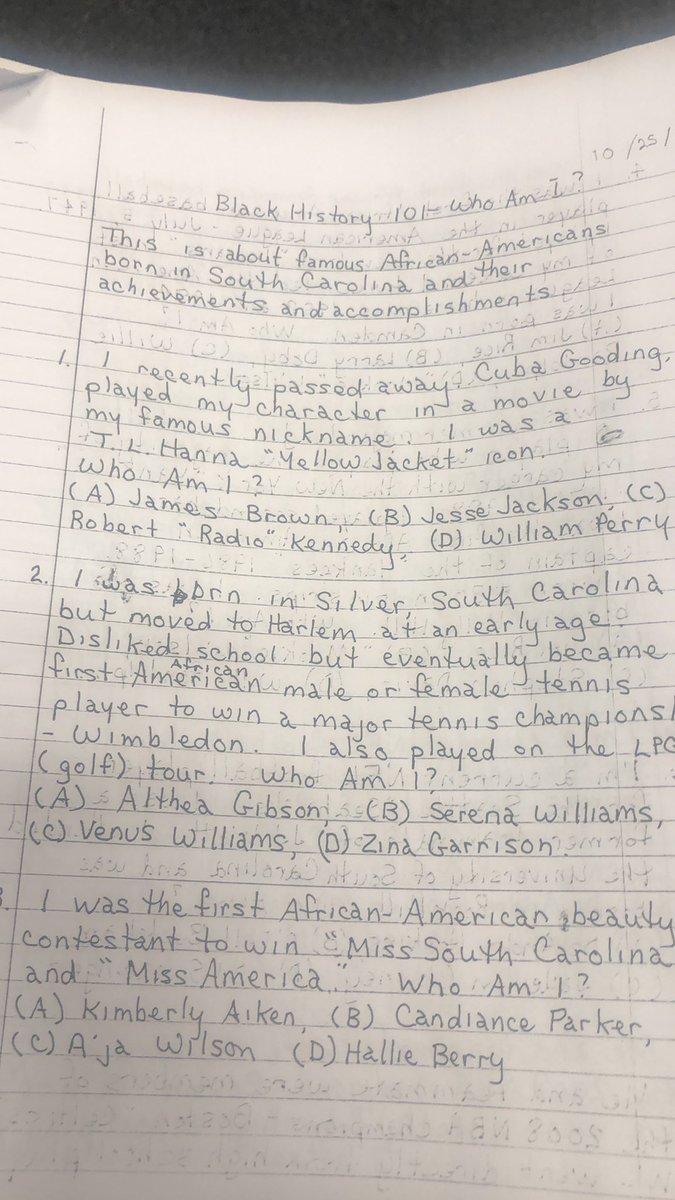 10/25/
Black History 101- Who Am I?
This is about famous African-Americans
born in South Carolina and their
achievements and accomplishments.
1. I recently passed away. Cuba Gooding,
played my character in a movie by
my famous nickname. I was a
T. L. Hanna "Yellow Jacket" icon.
Who Am I?
(A) James Brown, (B) Jesse Jackson, (C)
Robert "Radio" Kennedy. (D) William Perry
2. I was born in Silver, South Carolina
but moved to Harlem at an early age.
Disliked school but eventually became
first African American male or female tennis
player to win a major tennis champions
- Wimbledon. I also played on the LPG
(golf) tour. Who Am I?
(A) Althea Gibson, (B) Serena Williams,
(C) Venus Williams, (D) Zina Garrison.
3. I was the first African-American beauty
contestant to win "Miss South Carolina
and "Miss America." Who Am I?
(A) Kimberly Aiken, (B) Candiance Parker,
(C) A'ja Wilson (D) Hallie Berry